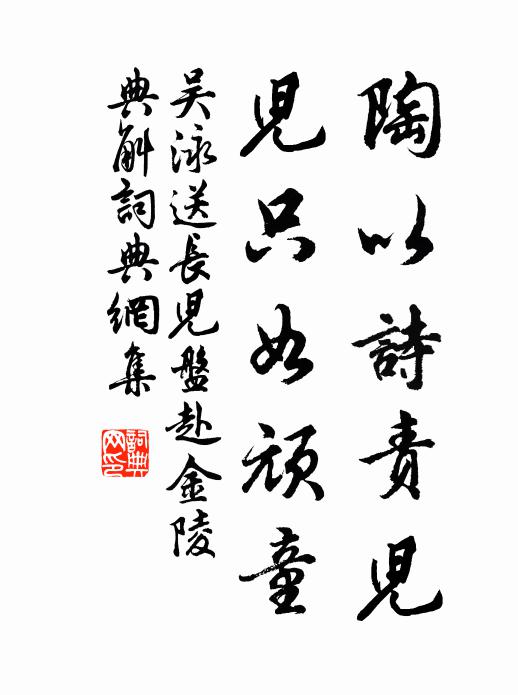 陶以詩責兒
兒只如頑童
吳泳送長兒盤赴金陵
典解詞典網集
詞典網印